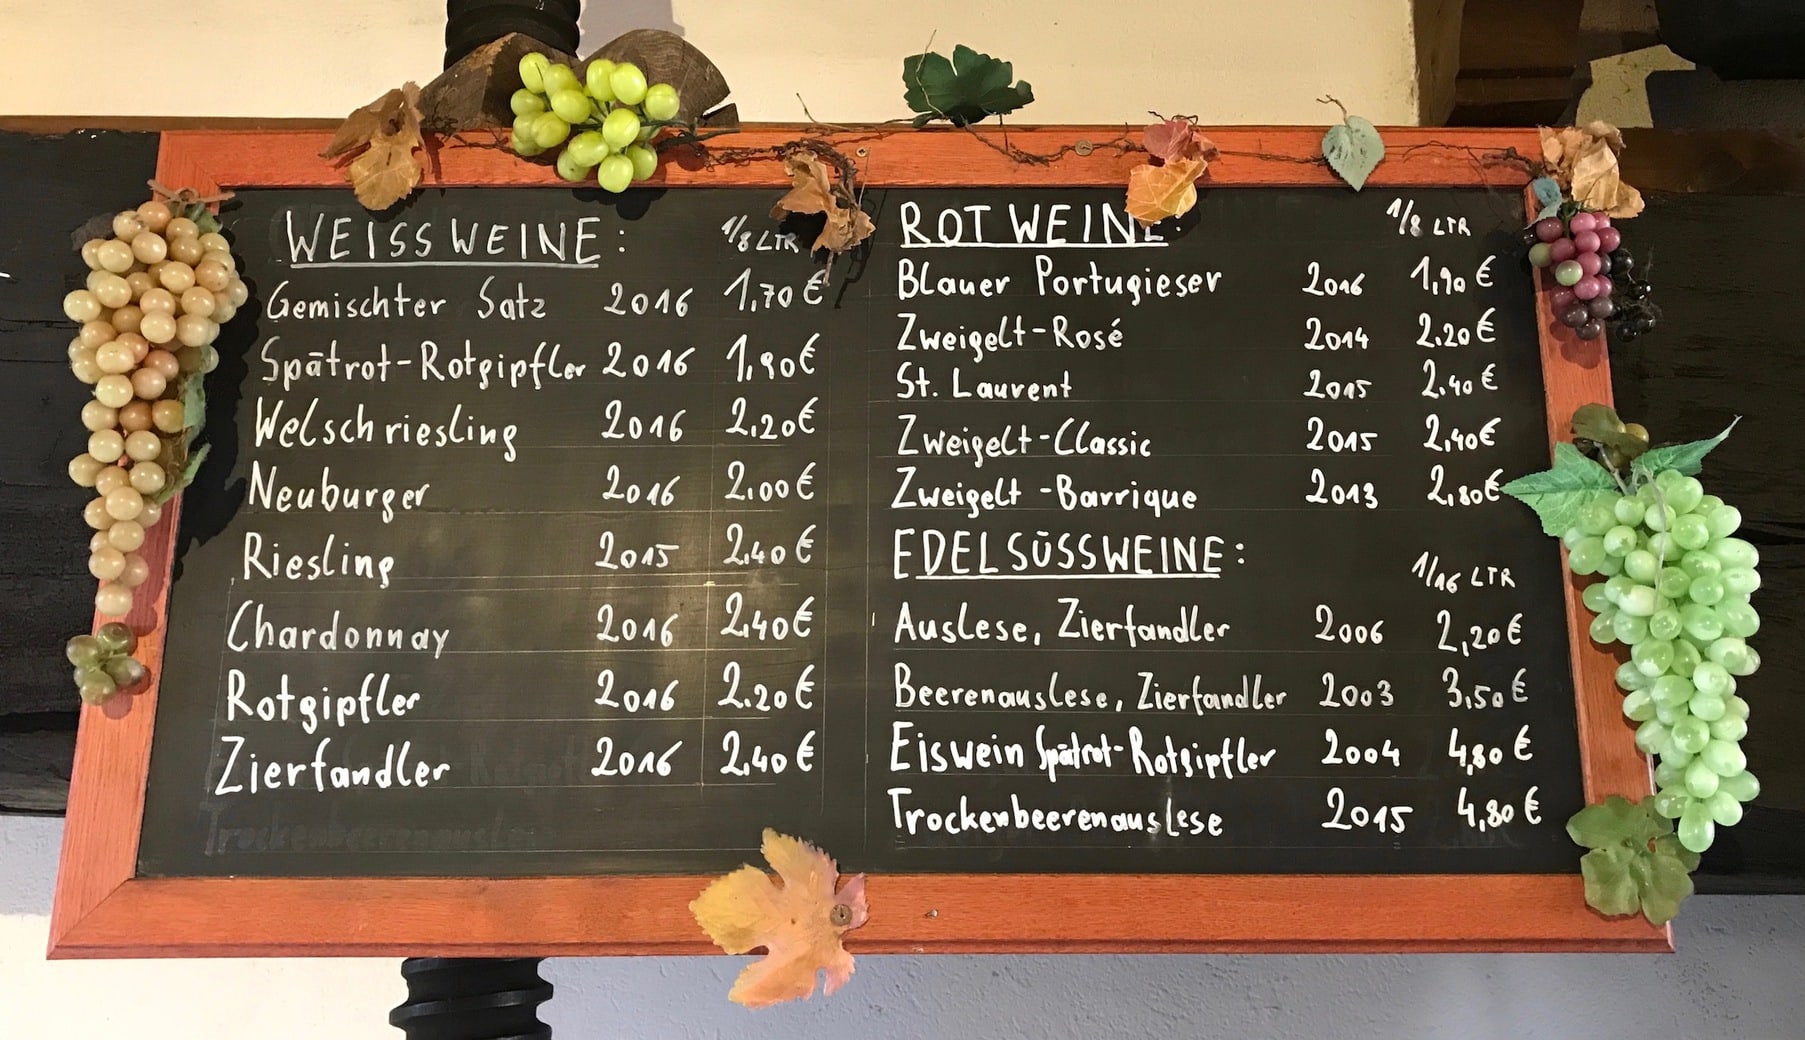 WEISSWEINE: 1/8 LTR
Gemischter Satz 2016 1,70 €
Spätrot-Rotgipfler 2016 1,90€
Welschriesling 2016 2,20€
Neuburger 2016 2,00€
Riesling 2015 2,40€
Chardonnay 2016 2,40€
Rotgipfler 2016 2.20€
Zierfandler 2016 2,40€
Trockenbeerenauslese
ROTWEINE: 1/8 LTR
Blauer Portugieser 2016 1,90€
Zweigelt-Rosé 2014 2.20€
St. Laurent 2015 2,40€
Zweigelt-Classic 2015 2,40€
Zweigelt-Barrique 2013 2,80€
EDELSÜSSWEINE: 1/16 LTR
Auslese, Zierfandler 2006 2,20€
Beerenauslese, Zierfandler 2003 3,50€
Eiswein Spätrot-Rotgipfler 2004 4,80€
Trockenbeerenauslese 2015 4,80€